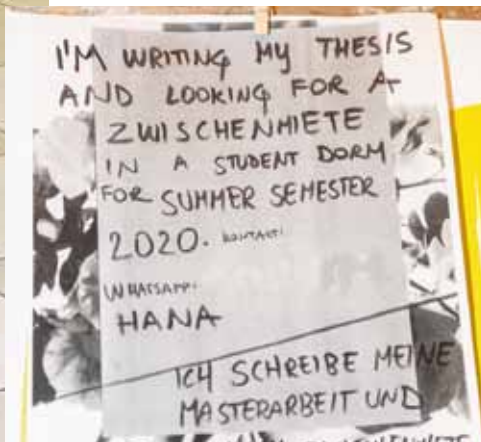 I'M WRITING MY THESIS
AND LOOKING FOR A
ZWISCHENMIETE
IN A STUDENT DORM
FOR SUMMER SEMESTER
2020. KONTAKT:
WHATSAPP:
HANA
ICH SCHREIBE MEINE
MASTERARBEIT UND